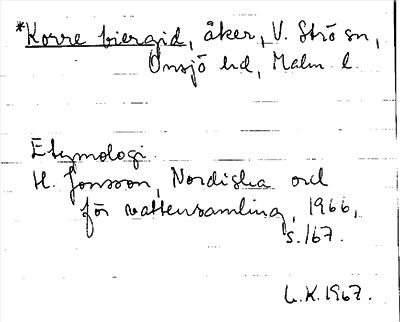 *Korre biergid, åker, V. Strö sn,
Onsjö hd, Malm l.
Etymologi.
H. Jonsson, Nordiska ord
för vattensamling, 1966,
s. 167.
L.K. 1967.